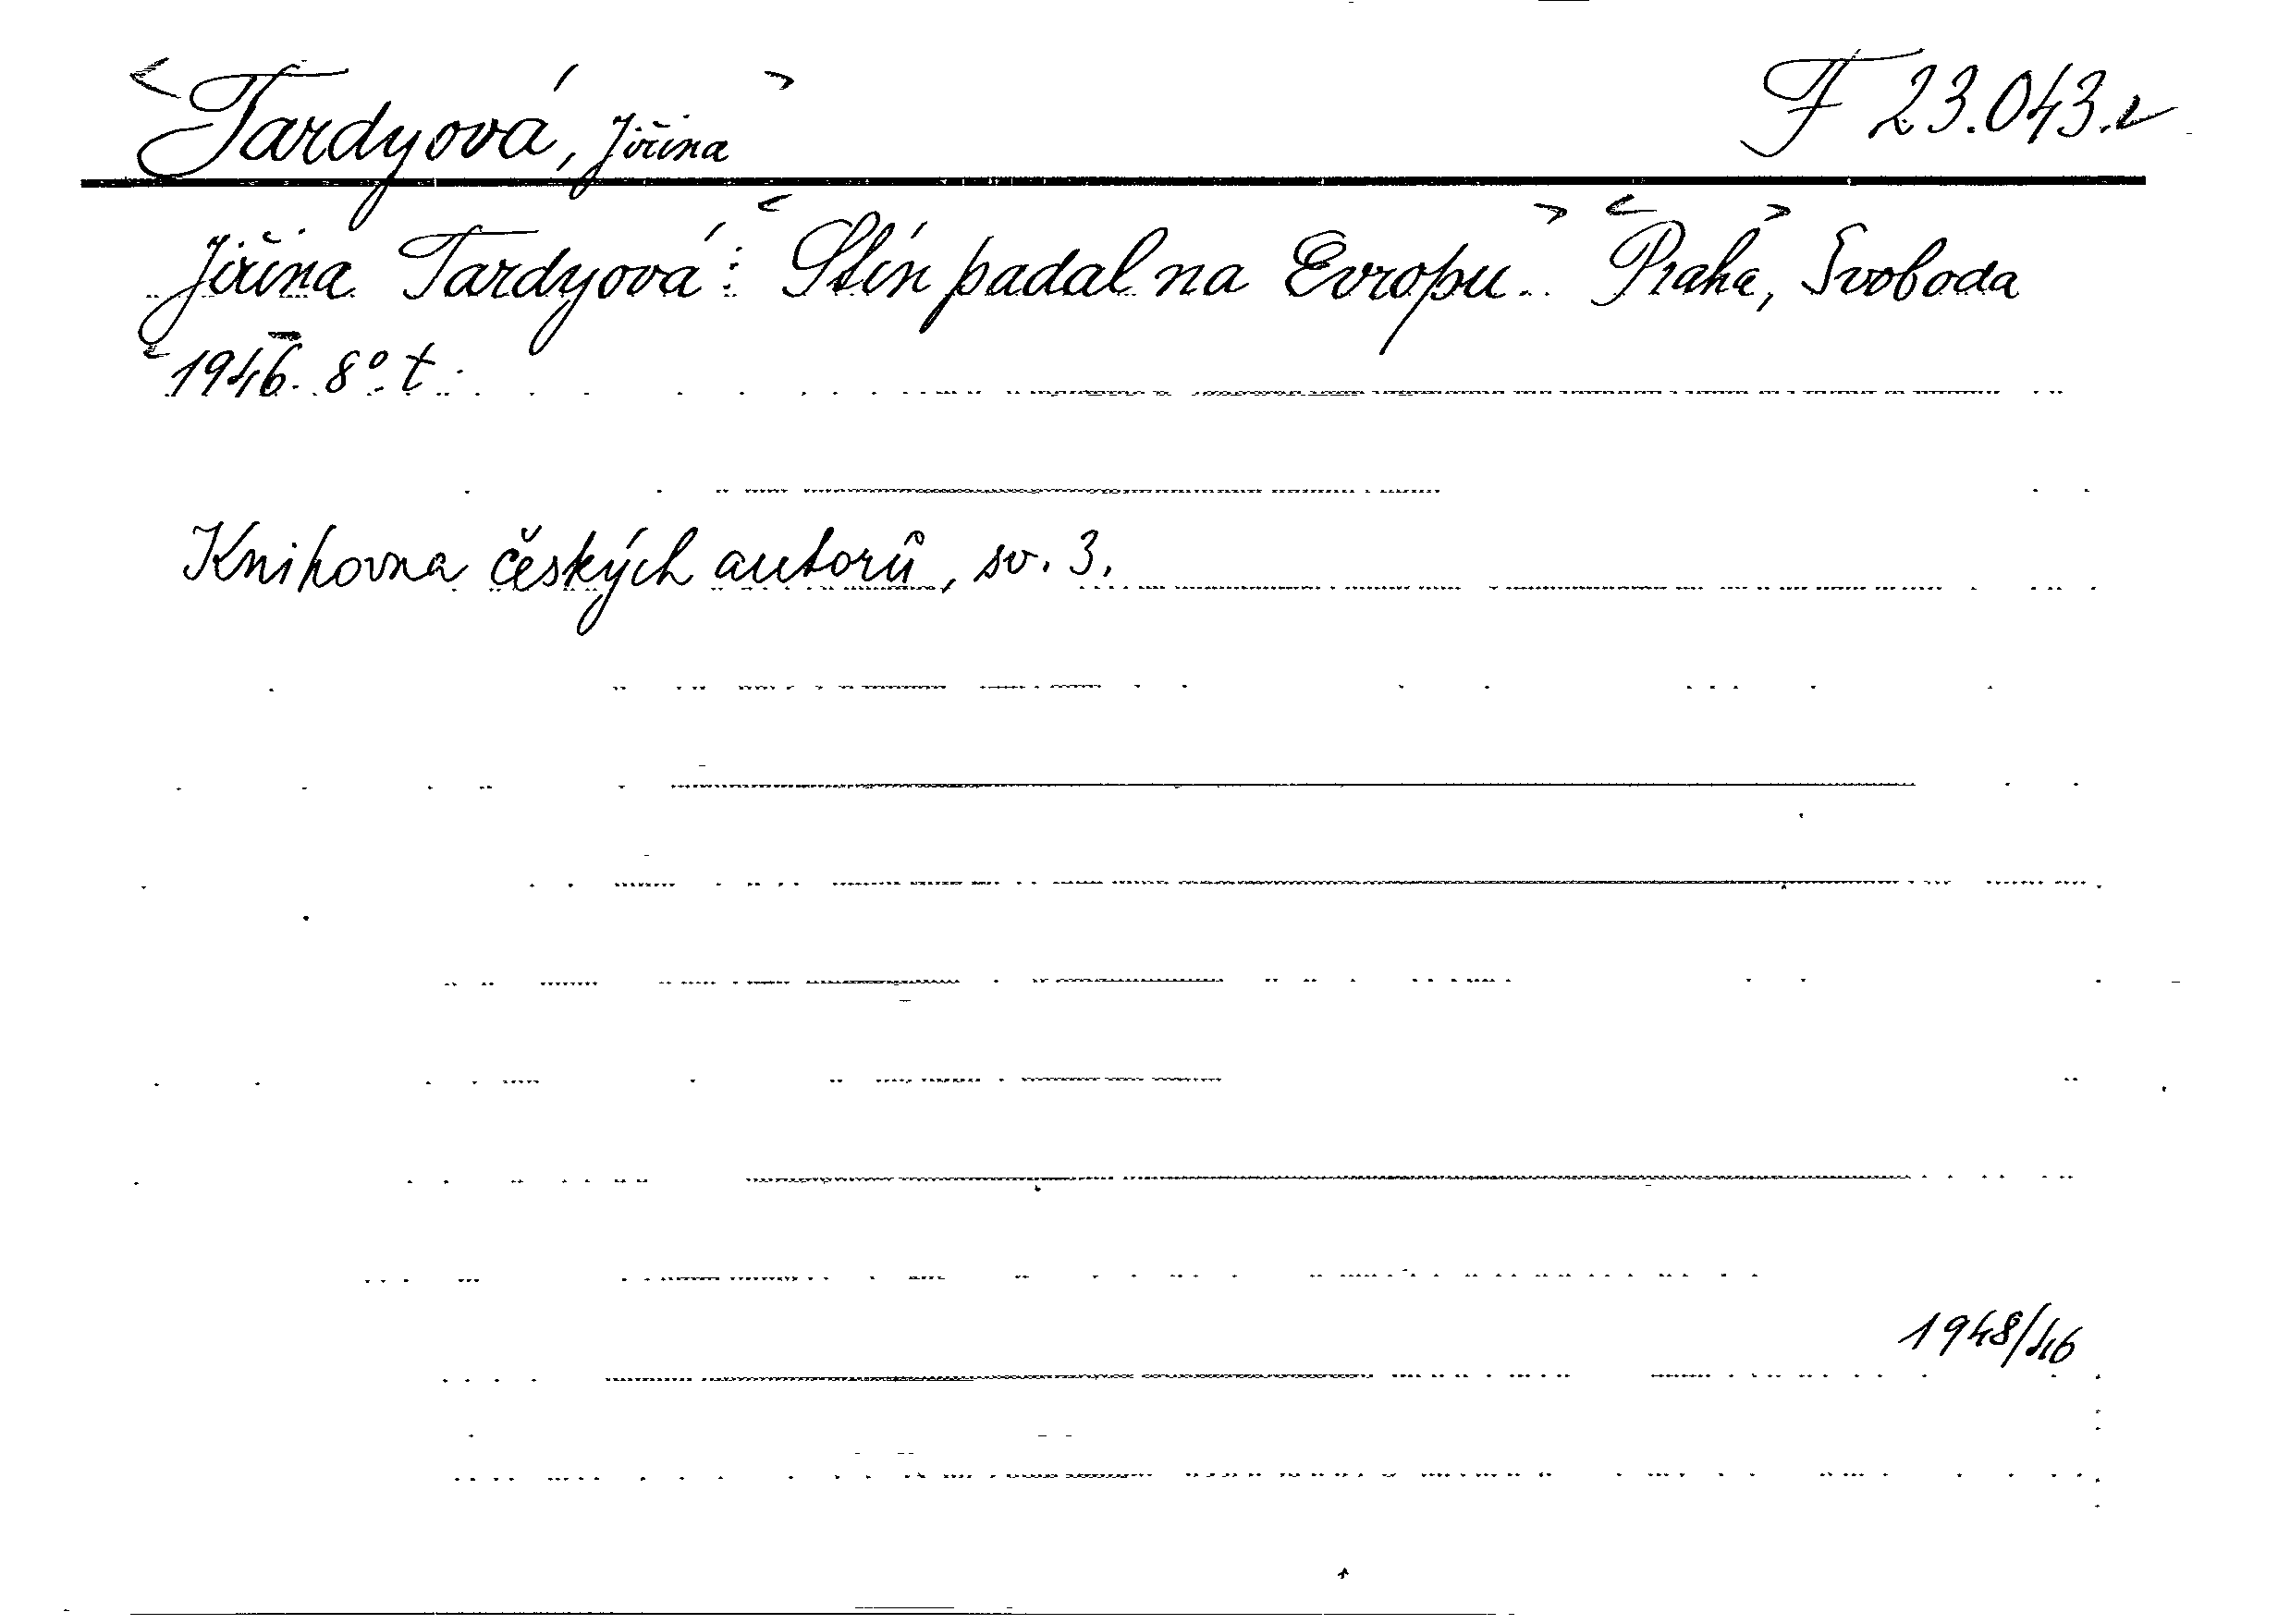 Tardyová, Jiřina F 23.043.
Jiřina Tardyová: Stín padal na Evropu. Praha, Svoboda
1946. 8° t.
Knihovna českých autorů, sv. 3.
1948/46